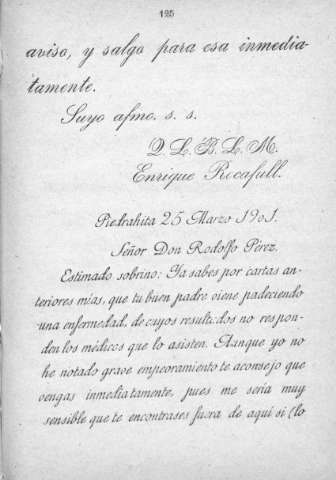 125
aviso, y salgo para esa inmedia-
tamente.
Suyo afmo. s. s.
Q. L. B. L. M.
Enrique Rocafull.
Piedrahita 25 Marzo 1901.
Señor Don Rodolfo Pérez.
Estimado sobrino: Ya sabes por cartas an-
teriores mías, que tu buen padre viene padeciendo
una enfermedad, de cuyos resultados no respon-
den los médicos que lo asisten. Aunque yo no
he notado grave empeoramiento te aconsejo que
vengas inmediatamente, pues me sería muy
sensible que te encontrases fuera de aquí si (lo